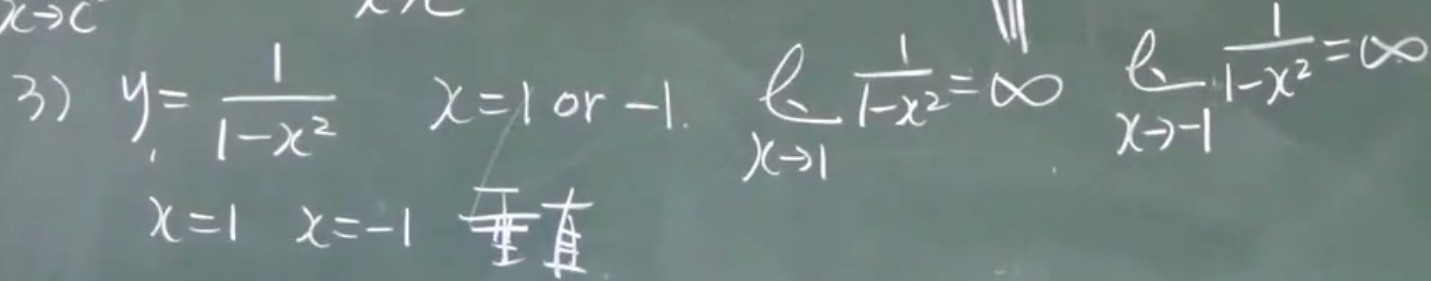 x→c
3) y = 1/(1-x²) x=1 or -1. lim x→1 1/(1-x²) = ∞ lim x→-1 1/(1-x²) = ∞
x=1 x=-1 垂直